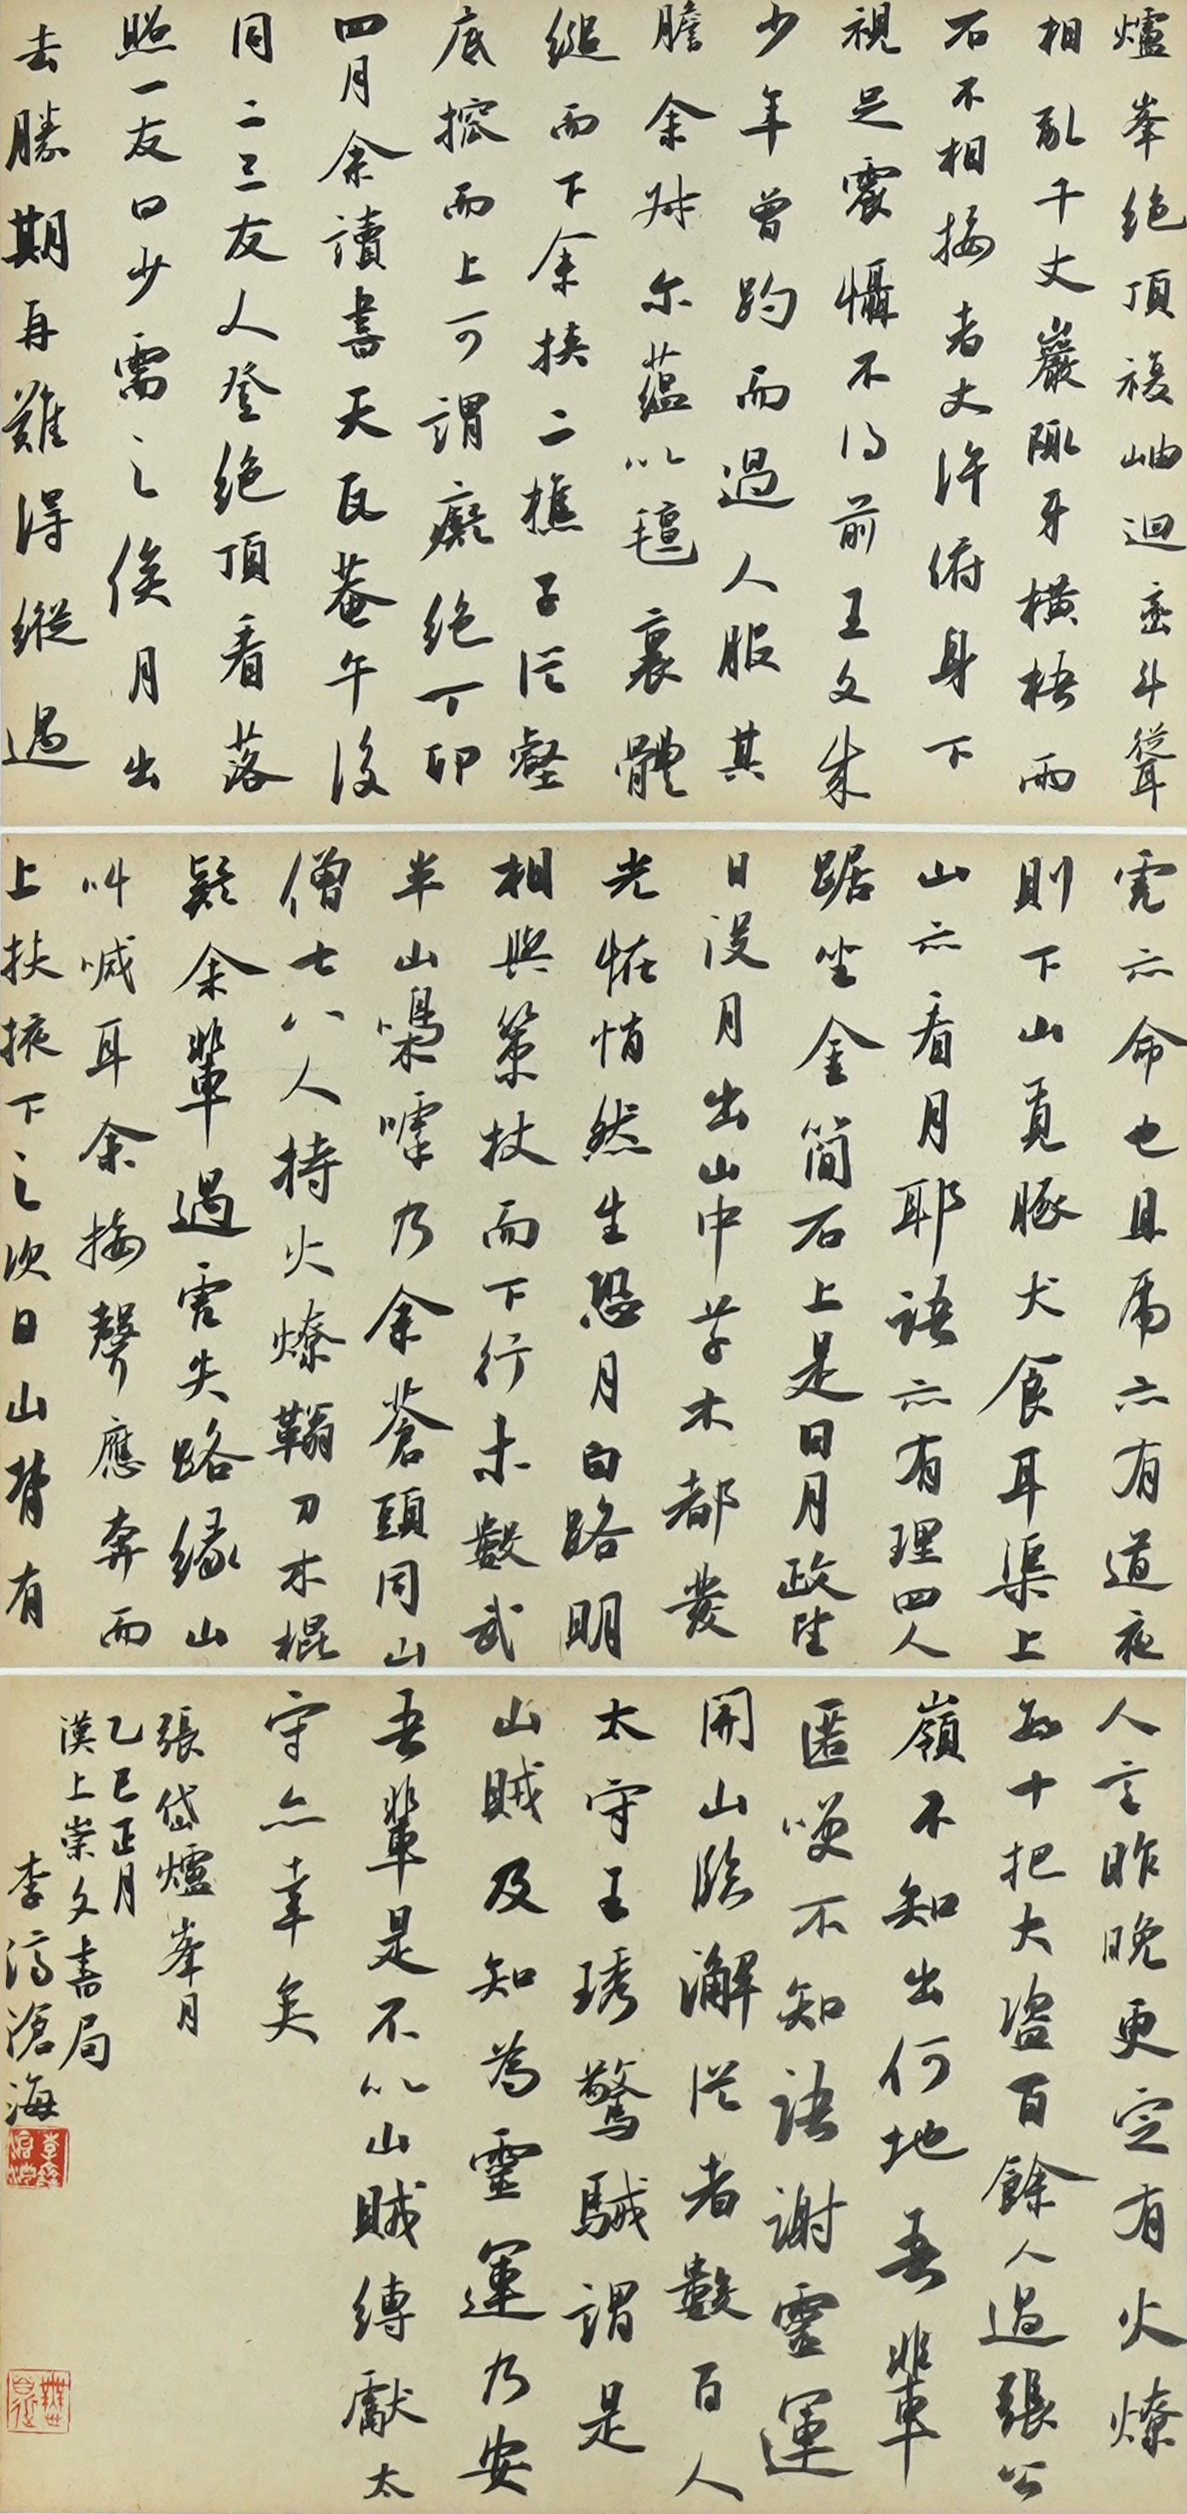 爐峯絶頂複岫迴巒斗聳
相亂千丈巖陬牙横梧兩
石不相接者丈許俯身下
視足震懾不得前王文成
少年曾趵而過人服其
膽余叔尔蘊以氊裹體
縋而下余挟二樵子從壑
底搲而上可謂癡絶丁卯
四月余讀書天瓦菴午後
同二三友人登絶頂看落
照一友曰少需之俟月出
去勝期再難得縱遇
虎亦命也且虎亦有道夜
則下山覓豚犬食耳渠上
山亦看月耶語亦有理四人
踞坐金簡石上是日月政望
日没月出山中草木都發
光怪悄然生恐月白路明
相與策杖而下行未數武
半山嘄嘑乃余蒼頭同山
僧七八人持火燎鞠刀木棍
疑余輩遇虎失路緣山
叫喊耳余接聲應奔而
上扶掖下之次日山背有
人言昨晚更定有火燎
數十把大盜百餘人過張公
嶺不知出何地吾輩
匿笑不知語謝靈運
開山臨澥從者數百人
太守王琇驚駴謂是
山賊及知為靈運乃安
吾輩是不以山賊縛獻太
守亦幸矣
張岱爐峯月
乙巳正月
漢上崇文書局
李 滄海